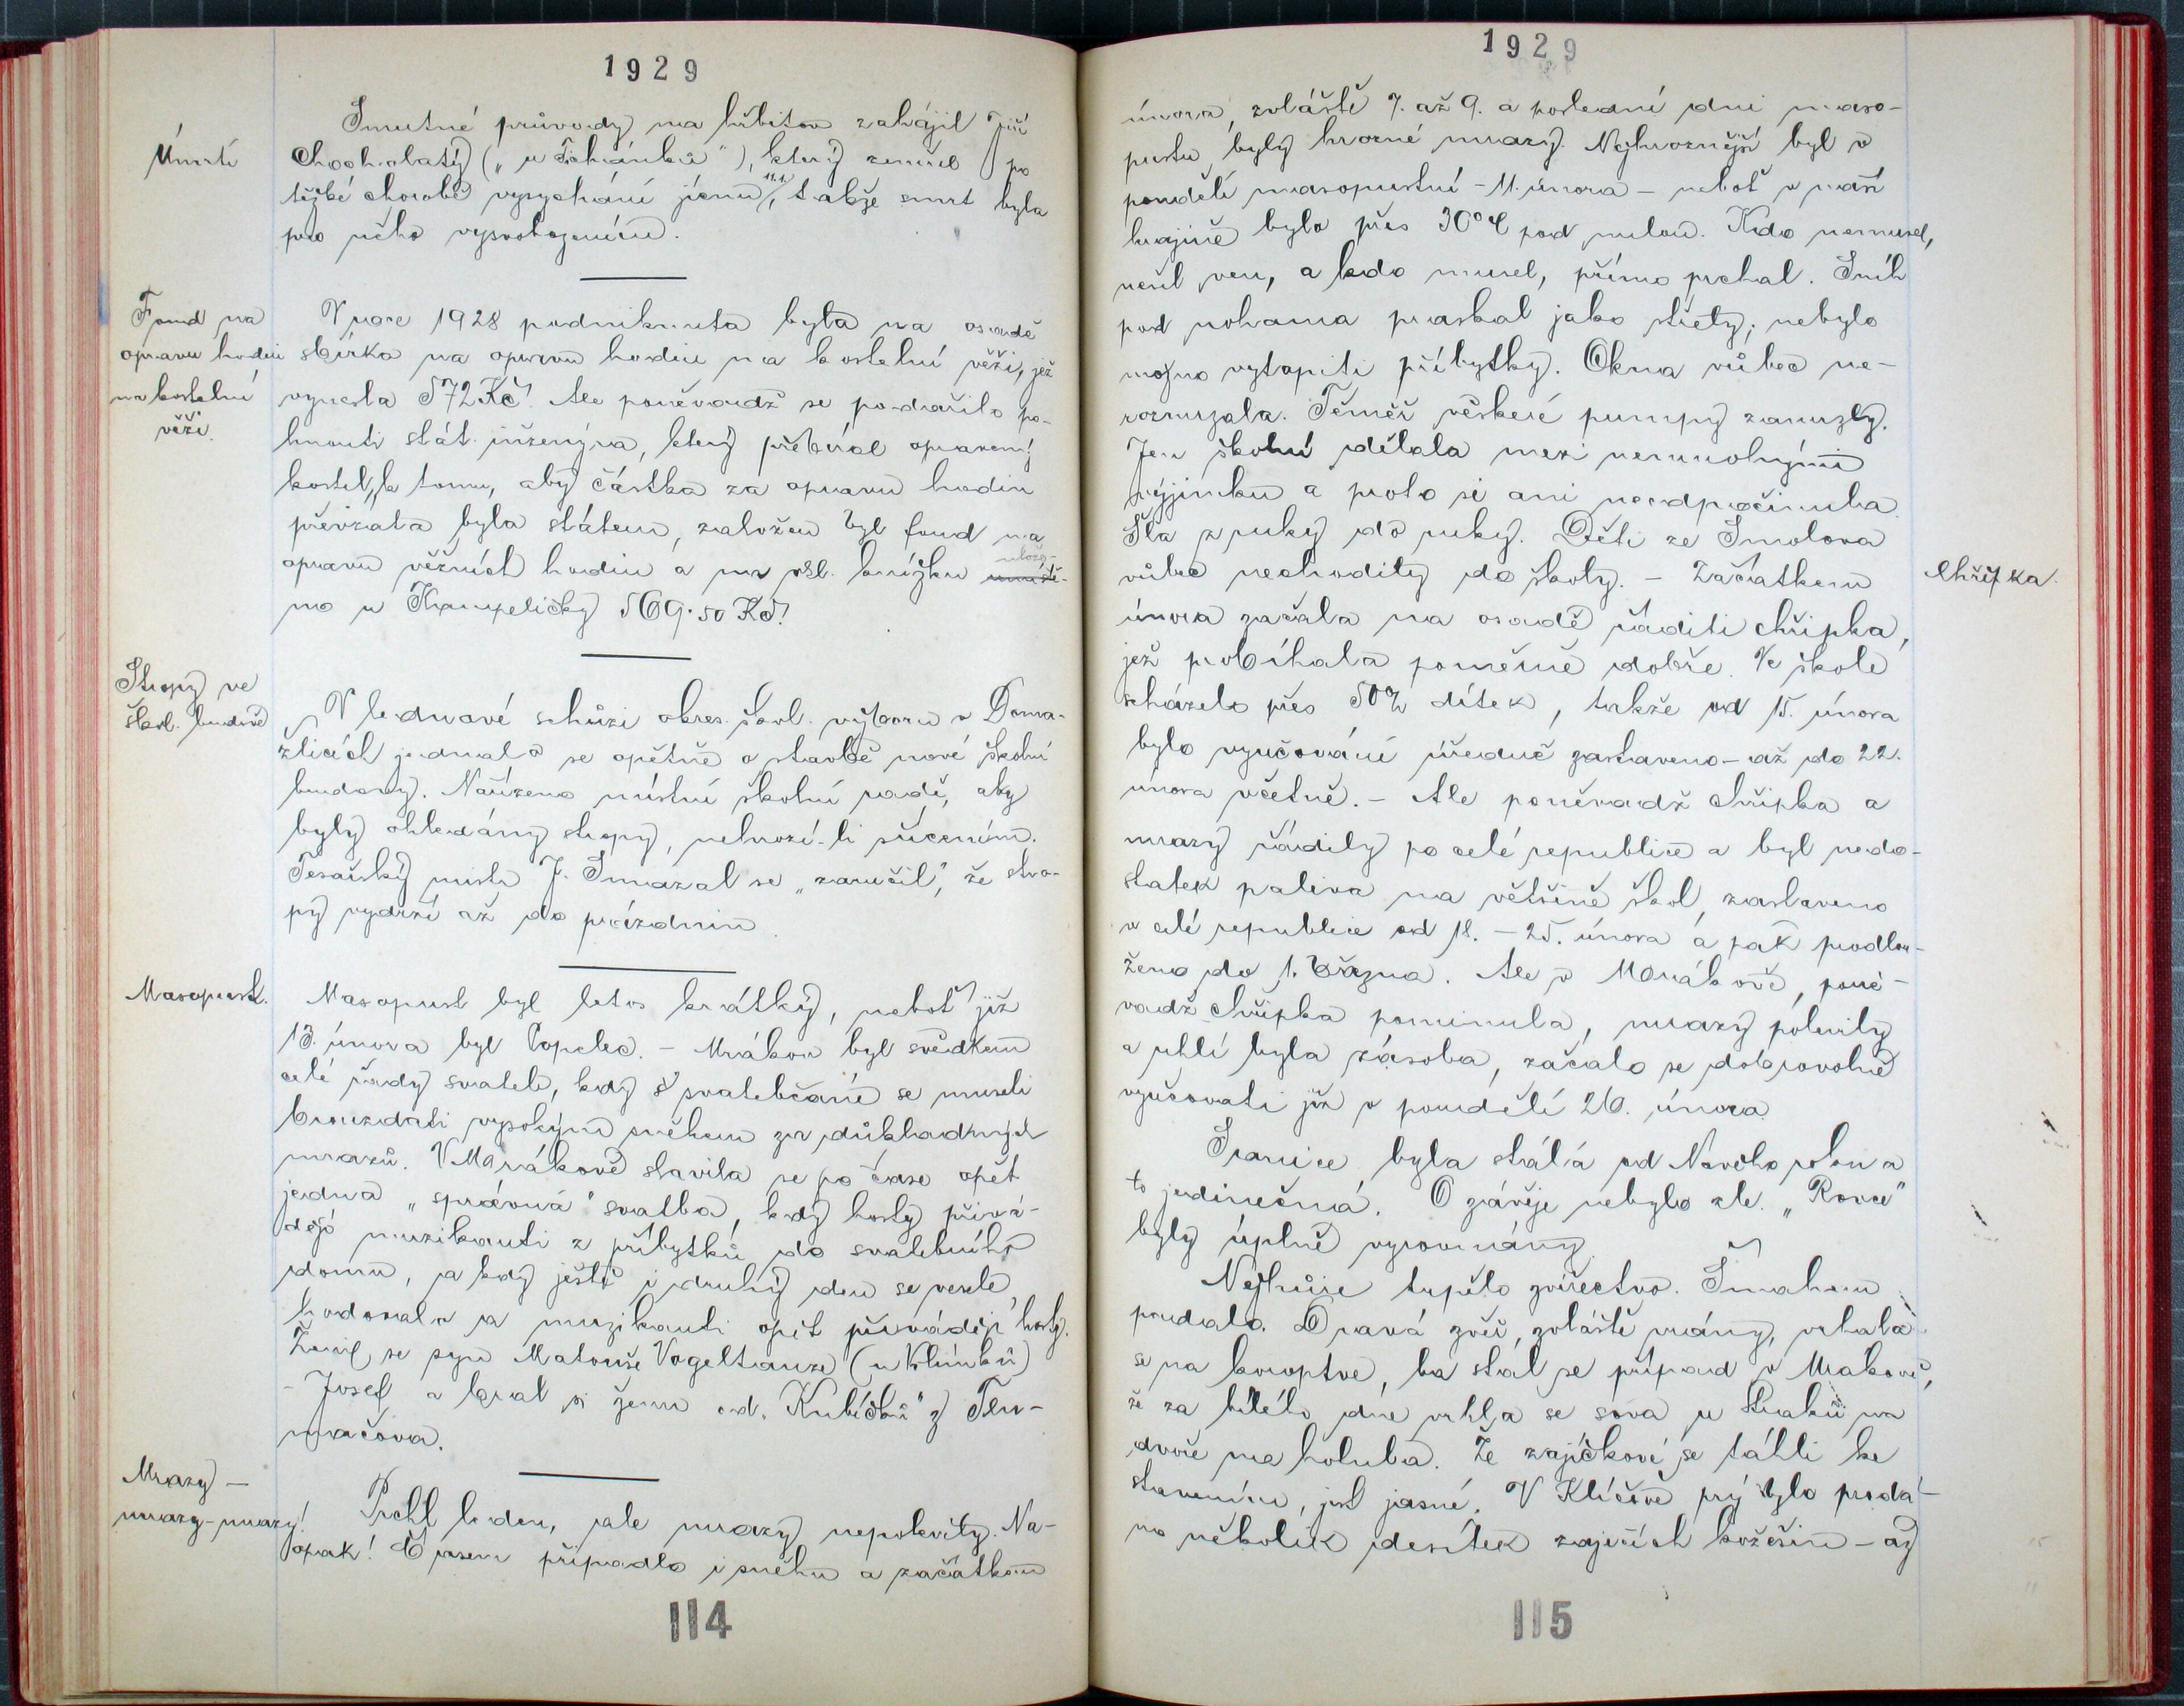 1929
Úmrtí
Smutné průvody na hřbitov zahájil Jiří
Chocholatý („u Tahánků"), který zemřel po
těžké chorobě vysychání jícnu, 11.1. takže smrt byla
pro něho vysvobozením.
Fond na
opravu hodin
na kostelní
věži.
V roce 1928 podniknuta byla na osadě
sbírka na opravu hodin na kostelní věži, jež
vynesla 572 Kč. Ale poněvadž se podařilo po-
hnouti stát. inženýra, který přebíral opravený
kostel, k tomu, aby částka za opravu hodin
převzata byla státem, založen byl fond na
opravu věžních hodin a na vkl. knížku ulože-
no u Kampeličky 569.50 Kč.
Stropy ve
škol. budově
V lednové schůzi okres. škol. výboru v Doma-
žlicích jednalo se opětně o stavbě nové školní
budovy. Nařízeno místní školní radě, aby
byly ohledány stropy, nehrozí-li sřícením.
Tesařský mistr J. Smazal se „zaručil", že stro-
py vydrží až do prázdnin.
Masopust.
Masopust byl letos krátký, neboť již
13. února byl Popelec. - Mrákov byl svědkem
celé řady svateb, kdy svatebčané se museli
brouzdati vysokým sněhem za důkladných
mrazů. V Mrákově slavila se po čase opět
jedna „správná" svatba, kdy hosty přivá-
dějí muzikanti z příbytků do svatebního
domu, a kdy ještě i druhý den se vesele
hodovalo a muzikanti opět přivádějí hosty.
Ženil se syn Matouše Vogeltanze (u Klimků)
- Josef a bral si ženu od „Kubíčků" z Tlu-
mačova.
Mrazy -
mrazy - mrazy!
Prchl leden, ale mrazy nepolevily. Na-
opak! Časem připadlo i sněhu a začátkem
114
1929
února, zvláště 7. až 9. a poslední dni maso-
pustu byly hrozné mrazy. Nejhroznější byl v
pondělí masopustní - 11. února - neboť v naší
krajině bylo přes 30°C pod nulou. Kdo nemusel,
nešel ven, a kdo musel, přímo prchal. Sníh
pod nohama praskal jako střety; nebylo
možno vytopiti příbytky. Okna vůbec ne-
rozmrzala. Téměř veškeré pumpy zamrzly.
Jen školní dělala mezi nemnohými
výjimku a proto si ani neodpočinula.
Šla z ruky do ruky. Děti ze Smolova
vůbec nechodily do školy. - Začátkem
Chřipka.
února začala na osadě řáditi chřipka,
jež probíhala poměrně dobře. Ve škole
scházelo přes 50% dítek, takže od 15. února
bylo vyučování úředně zastaveno - až do 22.
února včetně. - Ale poněvadž chřipka a
mrazy řádily po celé republice a byl nedo-
statek paliva na většině škol, zastaveno
v celé republice od 18. - 25. února a pak prodlou-
ženo do 1. března. Ale v Mrákově, poně-
vadž chřipka pominula, mrazy polevily
a uhlí byla zásoba, začalo se dobrovolně
vyučovati již v pondělí 26. února.
Sanice byla stálá od Nového roku a
to jedinečná. O závěje nebylo zle. „Rovce"
byly úplně vyrovnány.
Nejhůře trpělo zvířectvo. Šmahem
padalo. Dravá zvěř, zvláště vrány, vrhala
se na koroptve, ba stal se případ v Mrákově,
že za bílého dne vrhla se sova u Straků na
dvoře na holuba. Že zajíčkové se táhli ke
stavením, jest jasné. V Klíčově prý bylo prodá-
no několik desítek zaječích kožešin - až
115